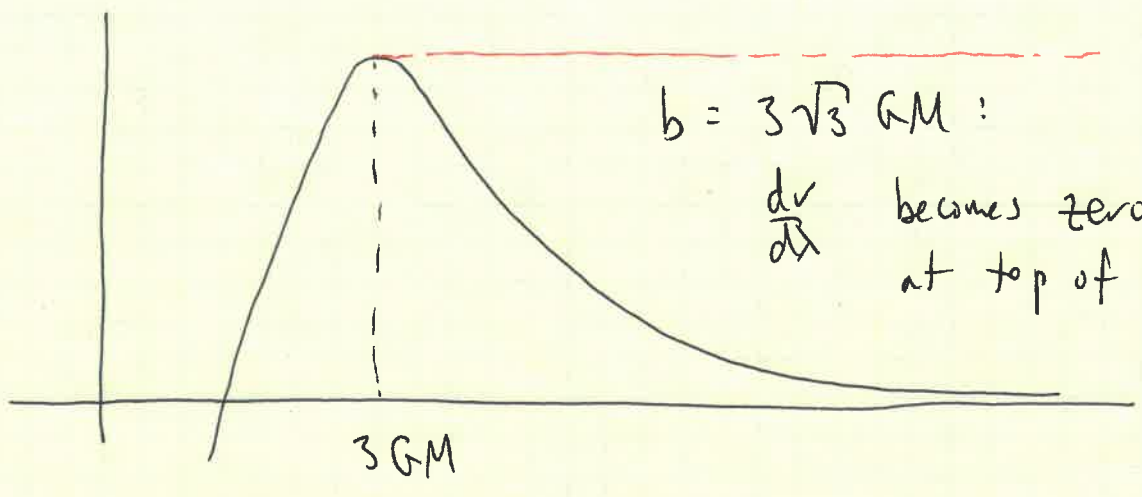 b = 3√3 GM :
dr/dλ becomes zero
at top of
3GM